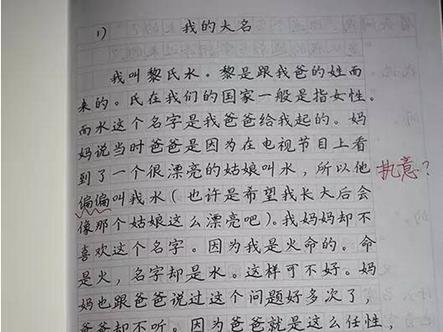 1) 我的大名
我叫黎氏水。黎是跟我爸的姓而
来的。氏在我们的国家一般是指女性。
而水这个名字是我爸爸给我起的。妈
妈说当时爸爸是因为在电视节目上看
到了一个很漂亮的姑娘叫水，所以他 执意？
偏偏叫我水（也许是希望我长大后会
像那个姑娘这么漂亮吧）。我妈妈却不
喜欢这个名字。因为我是火命的。命
是火，名字却是水。这样可不好。妈
妈也跟爸爸说过这个问题好多次了，
爸爸却不听。因为爸爸就是这么任性，